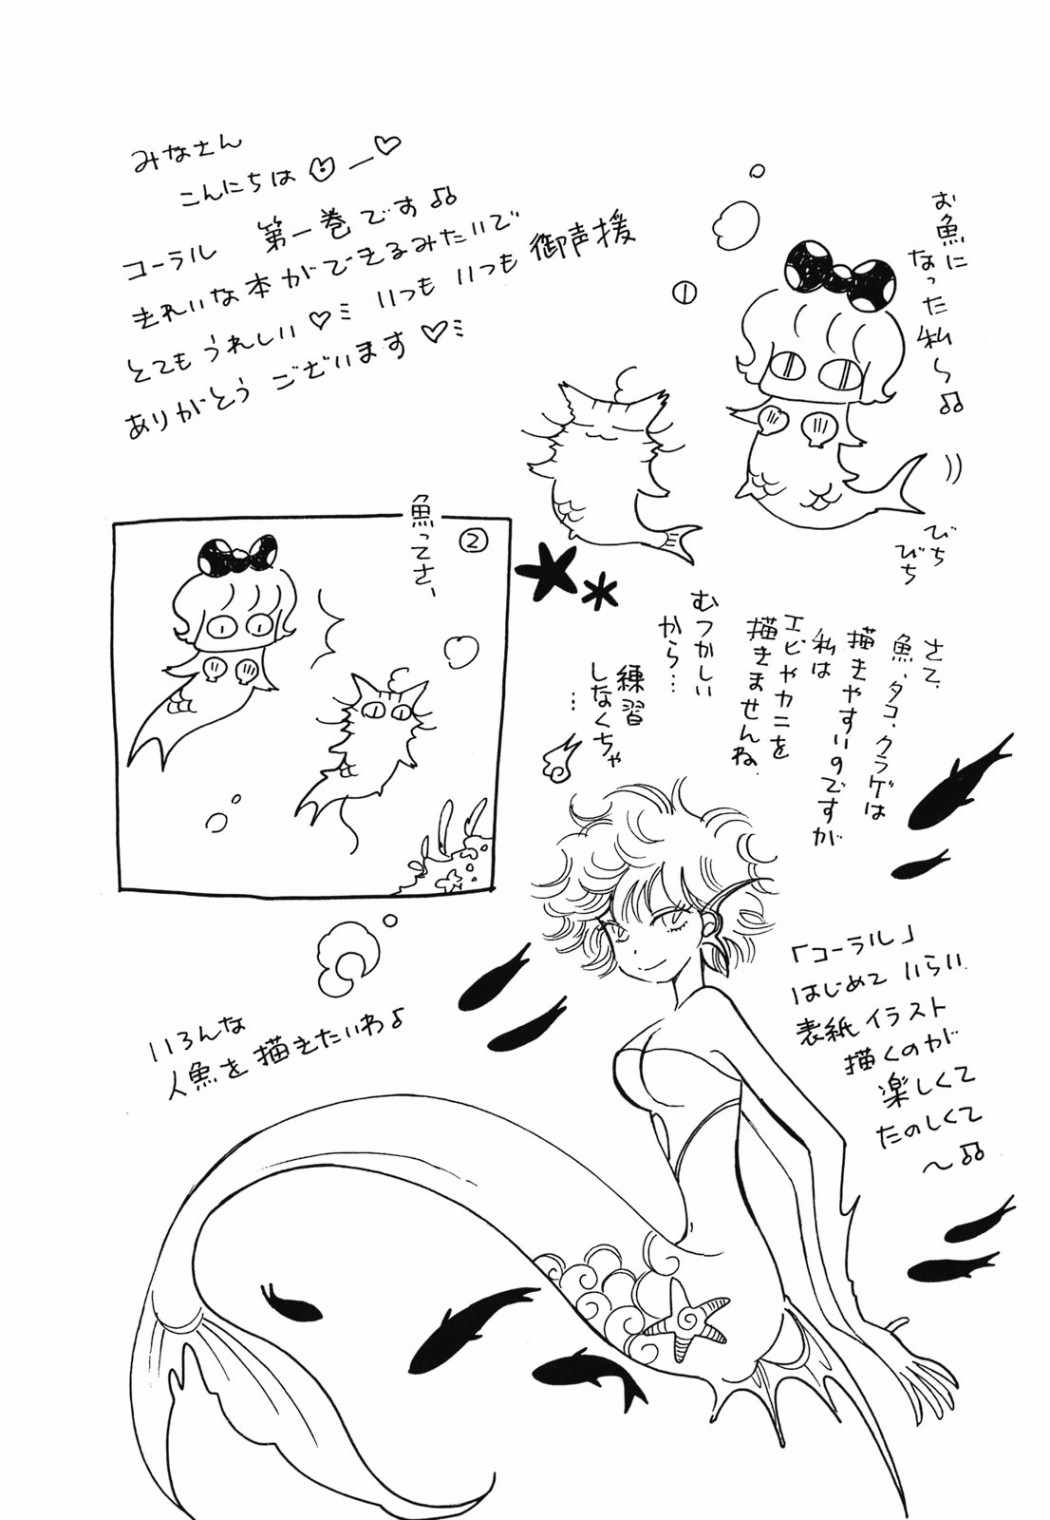 みなさん
こんにちは ー♡
コーラル 第一巻です♫
きれいな本ができるみたいで
とてもうれしい♡ミ いつも いつも 御声援
ありがとう ございます♡ミ
お魚に
なった私ら♫
①
びち
びち
魚ってさ、
②
さて、
魚、タコ、クラゲは
描きやすいのですが
私は
エビやカニを
描きませんね
むつかしい
から…
練習
しなくちゃ
……
「コーラル」
はじめて いらい
表紙イラスト
描くのが
楽しくて
たのしくて
～♫
いろんな
人魚を描きたいわ♪